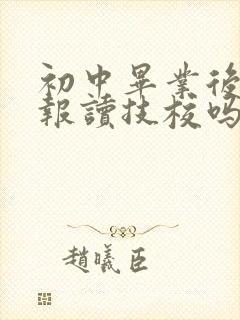 初中畢業後
報讀技校嗎
趙曦臣